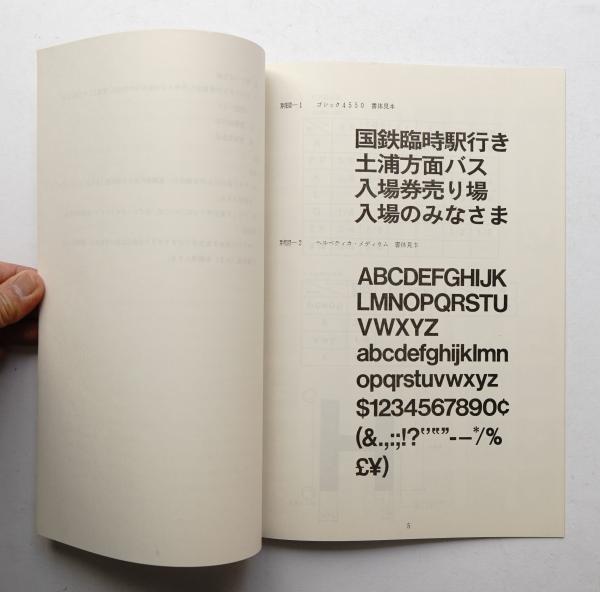 ゴシック4550 書体見本
国鉄臨時駅行き
土浦方面バス
入場券売り場
入場のみなさま
ヘルベティカ・メディウム 書体見本
ABCDEFGHIJK
LMNOPQRSTU
VWXYZ
abcdefghijklmn
opqrstuvwxyz
$1234567890¢
(&.,:;!?‘’“”-–*/%
£¥)
5